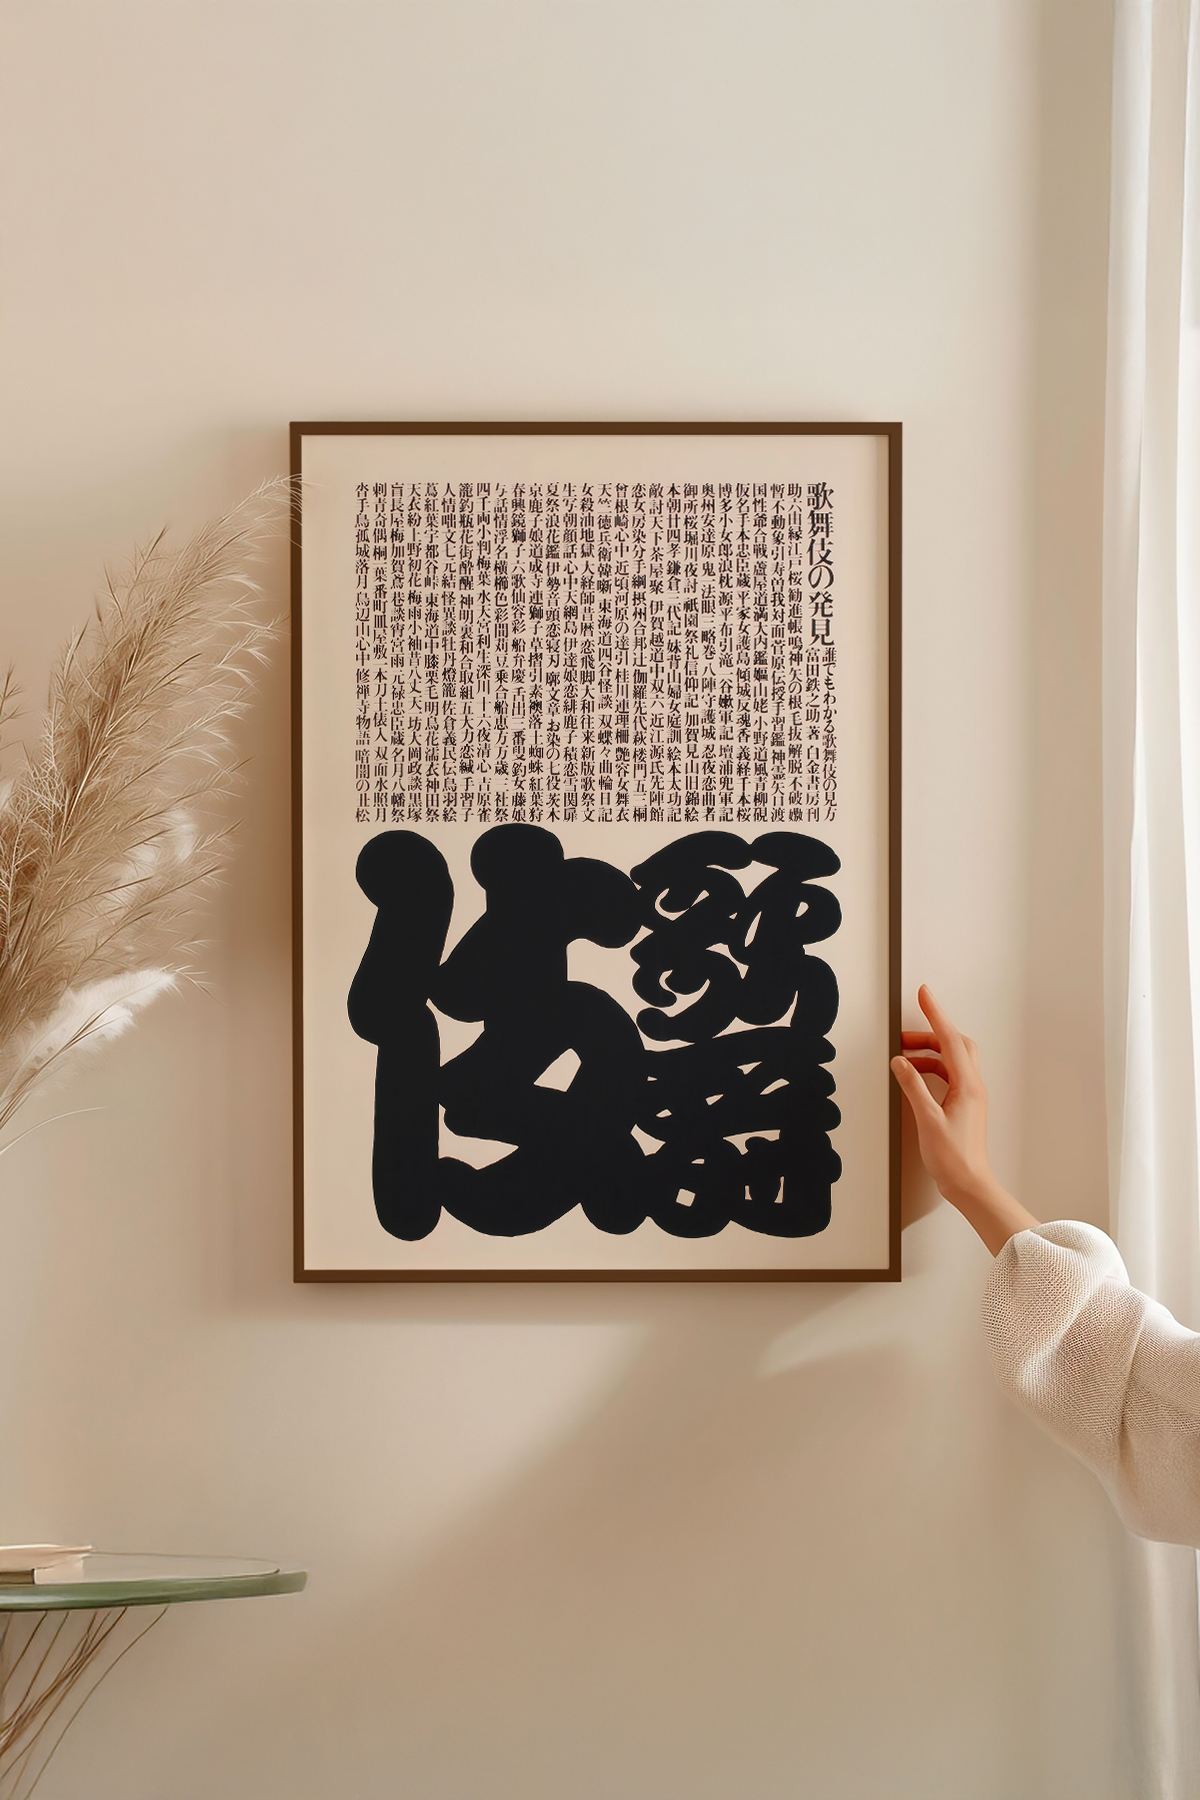 歌舞伎の発見
誰でもわかる歌舞伎の見方
富田鉄之助著 白金書房刊
助六 山縁江戸桜 勧進帳 鳴神 矢の根 毛抜 解脱 不破 嫐
暫 不動 象引 寿曽我対面 菅原伝授手習鑑 神霊矢口渡
国性爺合戦 蘆屋道満大内鑑 嫗山姥 小野道風青柳硯
仮名手本忠臣蔵 平家女護島 傾城反魂香 義経千本桜
博多小女郎浪枕 源平布引滝 一谷嫩軍記 壇浦兜軍記
奥州安達原 鬼一法眼三略巻 八陣守護城 忍夜恋曲者
御所桜堀川夜討 祇園祭礼信仰記 加賀見山旧錦絵
本朝廿四孝 鎌倉三代記 妹背山婦女庭訓 絵本太功記
敵討天下茶屋聚 伊賀越道中双六 近江源氏先陣館
恋女房染分手綱 摂州合邦辻 伽羅先代萩 楼門五三桐
曾根崎心中 近頃河原の達引 桂川連理柵 艶容女舞衣
天竺徳兵衛韓噺 東海道四谷怪談 双蝶々曲輪日記
女殺油地獄 大経師昔暦 恋飛脚大和往来 新版歌祭文
生写朝顔話 心中天網島 伊達娘恋緋鹿子 積恋雪関扉
夏祭浪花鑑 伊勢音頭恋寝刃 廓文章 お染の七役 茨木
京鹿子娘道成寺 連獅子 草摺引 素襖落 土蜘蛛 紅葉狩
春興鏡獅子 六歌仙容彩 船弁慶 舌出三番叟 釣女 藤娘
与話情浮名横櫛 色彩間苅豆 乗合船恵方万歳 三社祭
四千両小判梅葉 水天宮利生深川 十六夜清心 吉原雀
籠釣瓶花街酔醒 神明恵和合取組 五大力恋緘 手習子
人情噺文七元結 怪異談牡丹燈籠 佐倉義民伝 鳥羽絵
蔦紅葉宇都谷峠 東海道中膝栗毛 明烏花濡衣 神田祭
天衣紛上野初花 梅雨小袖昔八丈 天一坊大岡政談 黒塚
盲長屋梅加賀鳶 巷談宵宮雨 元禄忠臣蔵 名月八幡祭
刺青奇偶 桐一葉 番町皿屋敷 一本刀土俵入 双面水照月
沓手鳥孤城落月 鳥辺山心中 修禅寺物語 暗闇の丑松
歌舞伎